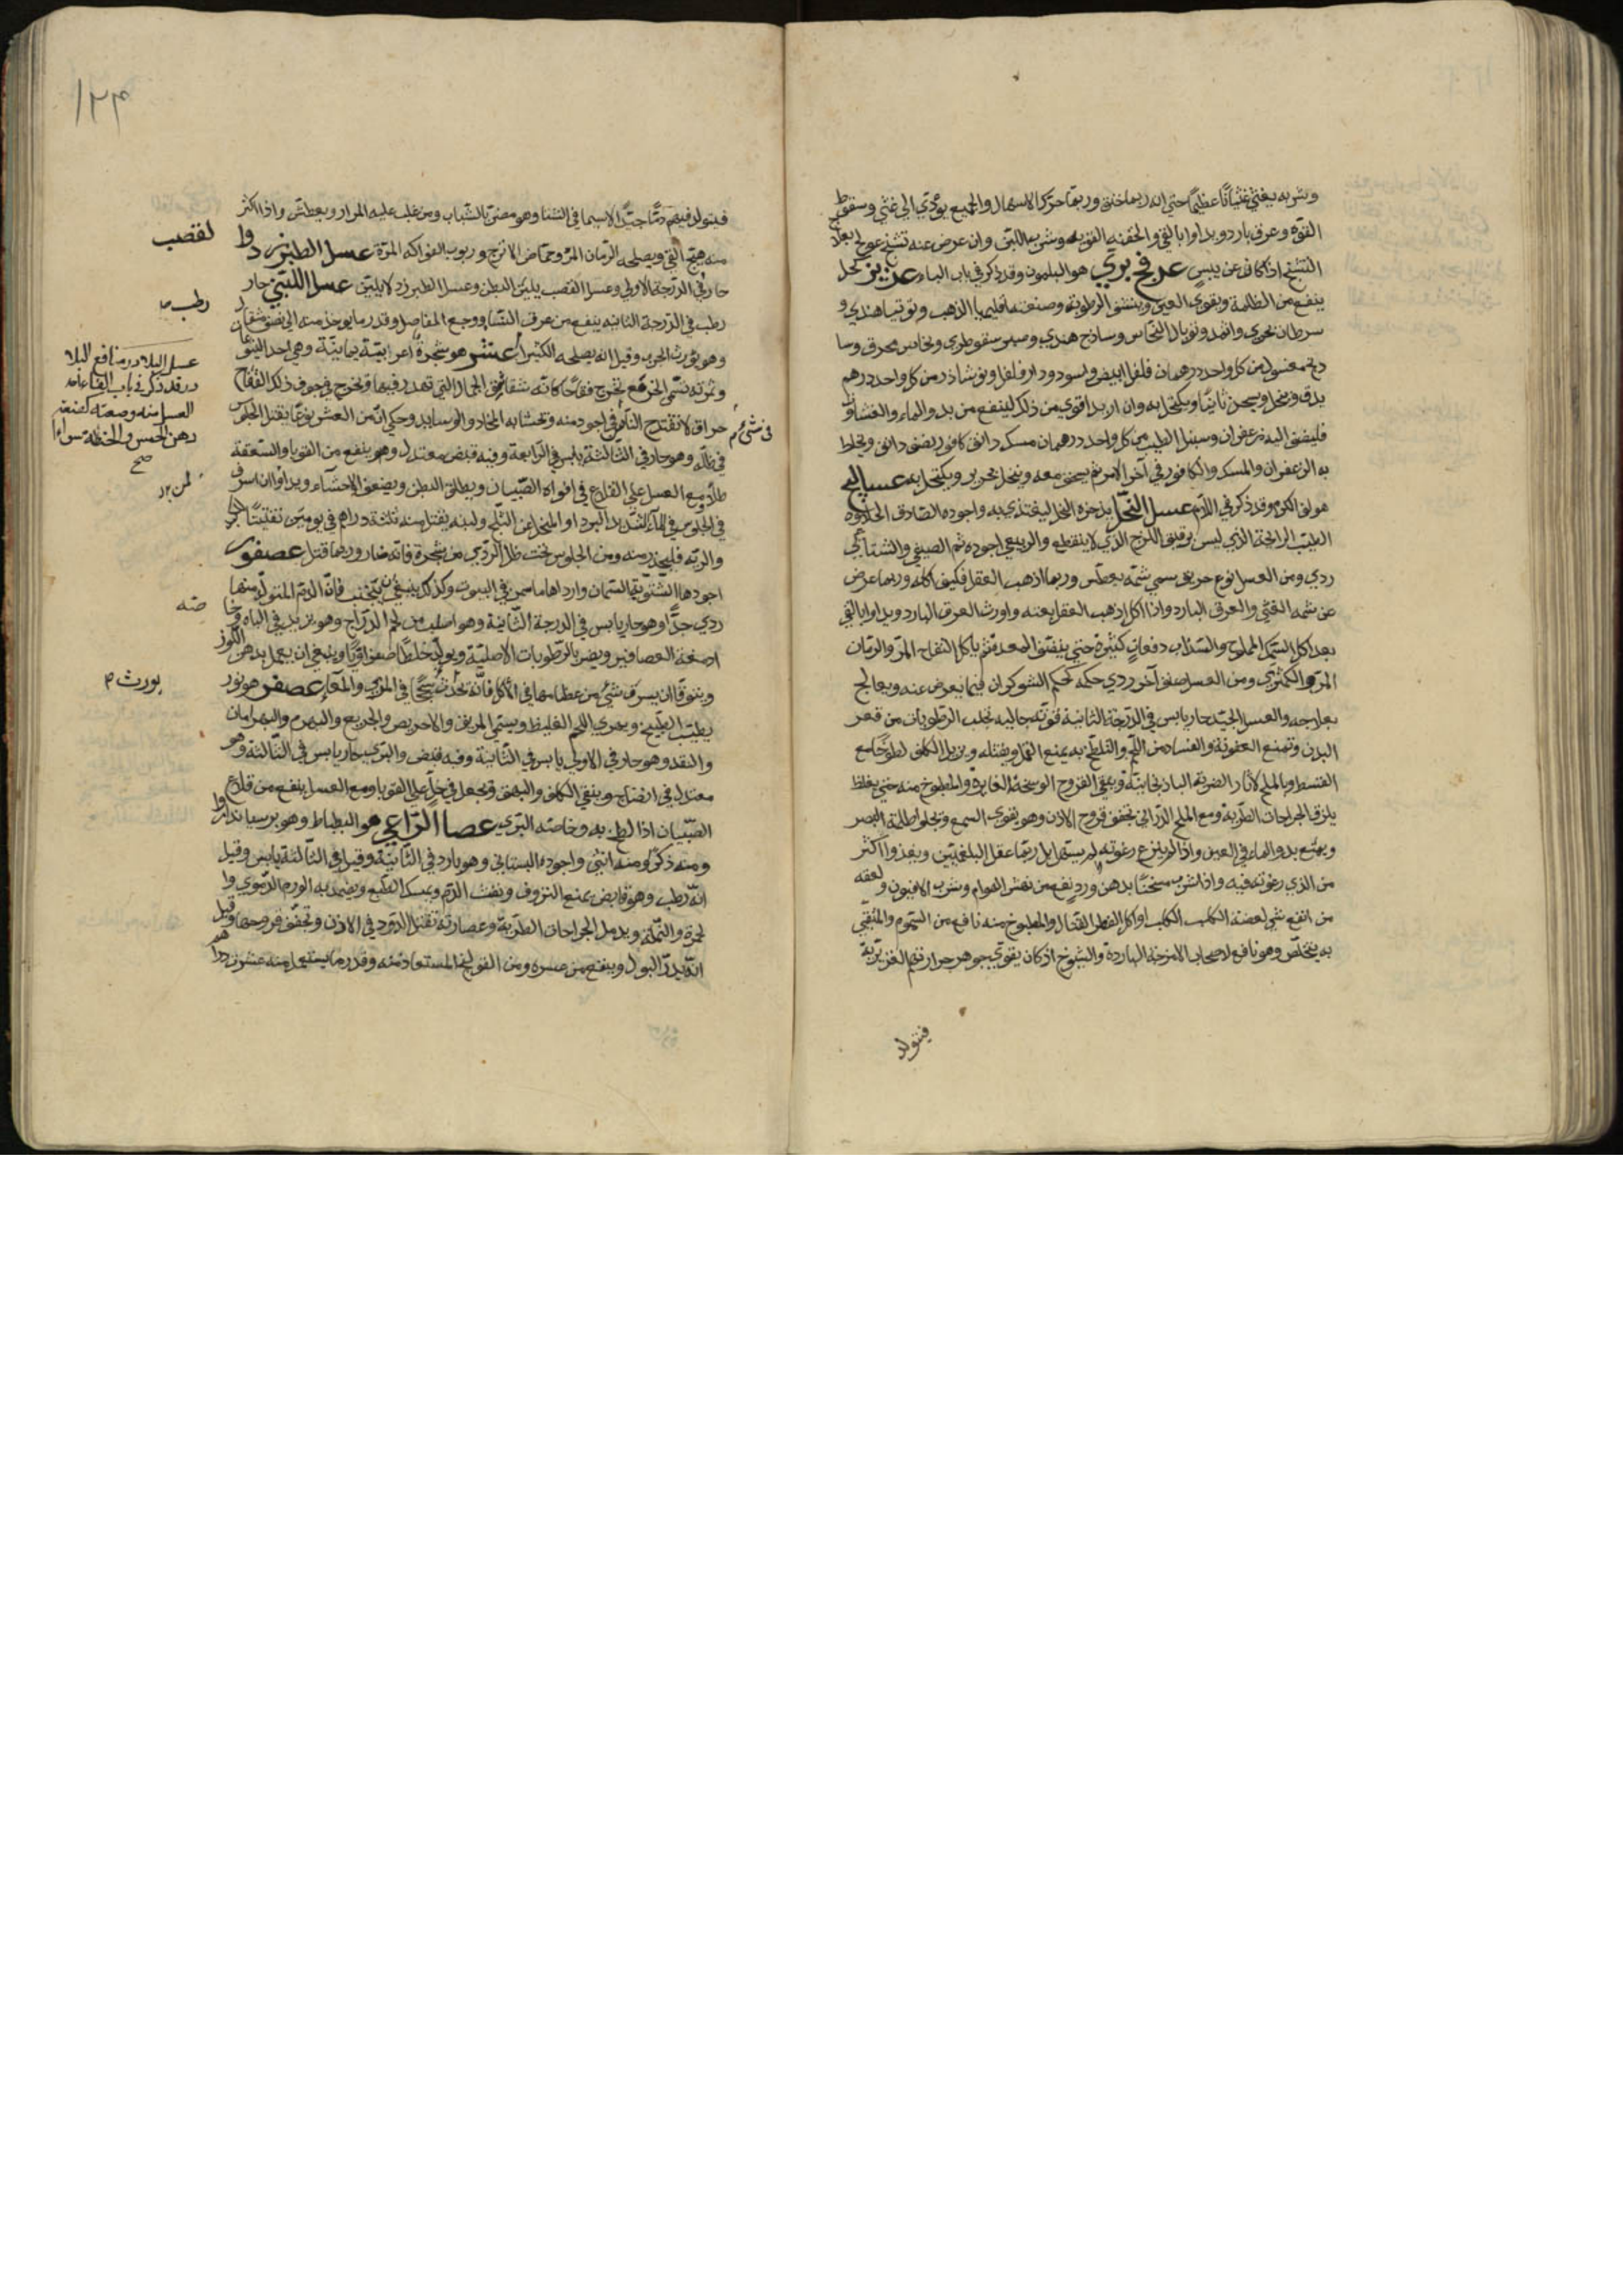 وشربه يغثي غثيانًا عظيمًا حتي انه ربما خنق وربما حرّك الاسهال والجميع يودّي الي غشي وسقوط
القوة وعرق بارد ويداوا بالقي والحقنه القويه وشرب اللبن وان عرض عنه تشنج عولج بعلاج
التشنج اذا كان عن يبس عرفج بري هو البلمون وقد ذكر في باب الباء عزيز كحل
ينفع من الظلمة ويقوي العين وينشف الرطوبة وصنعته اقليميا الذهب وتوتيا هندي و
سرطان بحري واثمد وتوبال النحاس وساذج هندي وصبر سقوطري ونحاس محرق وسا
دنج مغسول من كل واحد درهمان فلفل ابيض واسود ودار فلفل ونوشاذر من كل واحد درهم
يدق وينخل ويسحق ثانيًا ويكتحل به وان اريد اقوي من ذلك لينفع من بدو الماء والغشاوة
فليضف اليه زعفران وسنبل الطيب من كل واحد درهمان مسك دانق كافور نصف دانق ويخلط
به الزعفران والمسك والكافور في آخر الامر ثم يسحق معه وينخل بحرير ويكتحل به عساليج
هو لف الكرم وقد ذكر في اللام عسل النحل يدخره النحل ليغتذي به واجوده الصادق الحلاوة
الطيب الرايحة الذي ليس برقيق اللزج الذي لا ينقطع والربيعي اجوده ثم الصيفي والشتاءي
ردي ومن العسل نوع حريف سمي شمّه يعطس وربما اذهب العقل فكيف اكله وربما عرض
من شمه الغشي والعرق البارد واذا اكل اذهب العقل بغتة واورث العرق البارد ويداوا بالقي
بعد اكل السمك المملوح والسذاب دفعات كثيرة حتي ينقي المعدة ثم ياكل التفاح المز والرمان
المز والكمثري ومن العسل صنف آخر ردي حكمه كحكم الشوكران فيما يعرض عنه ويعالج
بعلاجه والعسل الجيّد حار يابس في الدرجة الثانية قوّته جالية تجلب الرطوبات من قعر
البدن وتمنع العفونة والفساد من اللحم والتلطخ به يمنع القمل ويقتله ويزيل الكلف لطوخًا مع
القسط وبالملح لآثار الضربة الباذنجانيّة وينقي القروح الوسخة الغايرة والمطبوخ منه حتي يغلظ
يلزق الجراحات الطرية ومع الملح الذراني يجفف قروح الاذن وهو يقوي السمع ويجلوا ظلمة البصر
ويمنع بدو الماء في العين واذا لم ينزع رغوته لم يستمر ابل ربما عقل البلغميّين ويغذوا اكثر
من الذي رغوته فيه واذا شرب مسخنًا بدهن ورد نفع من نهش الهوام وشرب الافيون ولعقه
من انفع شي لعضة الكلب الكلب اواكل الفطر القتال والمطبوخ منه نافع من السموم والمتقي
به يتخلص وهو نافع لاصحاب الامزجة الباردة والشيوخ اذ كان يقوي جوهر حرارتهم الغريزية
فيتولد
١٢٣
فيتولد فيهم دمًا جيدًا لاسيما في الشتا وهو مضرّ بالشباب ومن غلب عليه المرار ويعطش واذا اكثر
منه هيّج القي ويصلحه الرمان المز وحماض الاترج وربوب الفواكه المزة عسل الطبرزد وا
لقصب
حار في الدرجة الاولي وعسل القصب يليّن البطن وعسل الطبرزد لا يلين عسل اللبني حار
رطب في الدرجة الثانيه ينفع من عرق النسا ووجع المفاصل وقدر ما يوخذ منه الي نصف مثقال
رطب ص
وهو يورث الجرب وقيل انه يصلحه الكثيرا عشر هو شجرة اعرابيّة يمانيّة وهي احد اليتوعات
وثمرته تسمّي الخرفع يخرج فقاحًا كانه شقاشق الجمال التي تهدر فيها ويخرج في جوف ذلك الفقاح
حراق لا تقتدح النار في اجود منه وتحشا به المخاد والوسايد وحكي ان من العشر نوعًا يقتل الجلوس
في شيء م
في ظلّه وهو حار في الثالثة يابس في الرابعة وفيه قبض معتدل وهو ينفع من القوبا والسعفة
طلاء ومع العسل علي القلاع في افواه الصّبيان ويطلق البطن ويضعف الاحشاء ويداوا ان اسرف
في الجلوس في الماء الشديد البرد او المتخذ عن الثلج ولبنه يقتل منه ثلثة دراهم في يومين تفتيتًا
والرئة فليحذر منه ومن الجلوس تحت ظل الردّي من شجرة فانه ضار وربما قتل عصفور
اجودها الشتوية السمان واردأها ما سمن في البيوت وكذلك ينبغي ان يتجنب فان الدم المتولد منها
ردي جدًا وهو حار يابس في الدرجة الثانية وهو اصلب من لحم الدّراج وهو يزيد في الباه وخا
صّه
ادمغة العصافير ويضر بالرّطوبات الاصليّة ويولد خلطًا صفراويًا وينبغي ان يعمل بدهن اللوز
ويتوقا ان يسرف شيٌ من عظامها في الاكل فانّه تحدث سحجًا في المري والمعا عصفر هو نور
يورث م
يطيّب الطبيخ ويهري اللحم الغليظ ويسمي المريق والاحريض والجريع والبهرم والبهرامان
والنقد وهو حار في الاولي يابس في الثانية وفيه قبض والبري حار يابس في الثالثة وهو
معتدل في انضاج وينقي الكلف والبهق وتجعل في خل علي القوبا ومع العسل ينفع من قلاع
الصّبيان اذا لطخ به وخاصة البري عصا الرّاعي هو البطباط وهو برسيان دارو
ومنه ذكر ومنه انثي واجوده البستاني وهو بارد في الثانية وقيل في الثالثة يابس وقيل
انه رطب وهو قابض يمنع النزوف ونفث الدم ويمسك الطبع ويضمد به الورم الدموي وا
لحمرة والنملة ويدمل الجراحات الطريّة وعصارته تقتل الدود في الاذن وتجفف قروحها وقيل
انه يدرّ البول وينفع من عسره ومن القولنج المستعاذ منه وقدر ما يستعمل منه عشرون درهم
عسل البلادر منافع البلا
در وقد ذكر في باب الباء
العسل منه وصنعته كصنعة
دهن الخس والحنطة سواءً
صح